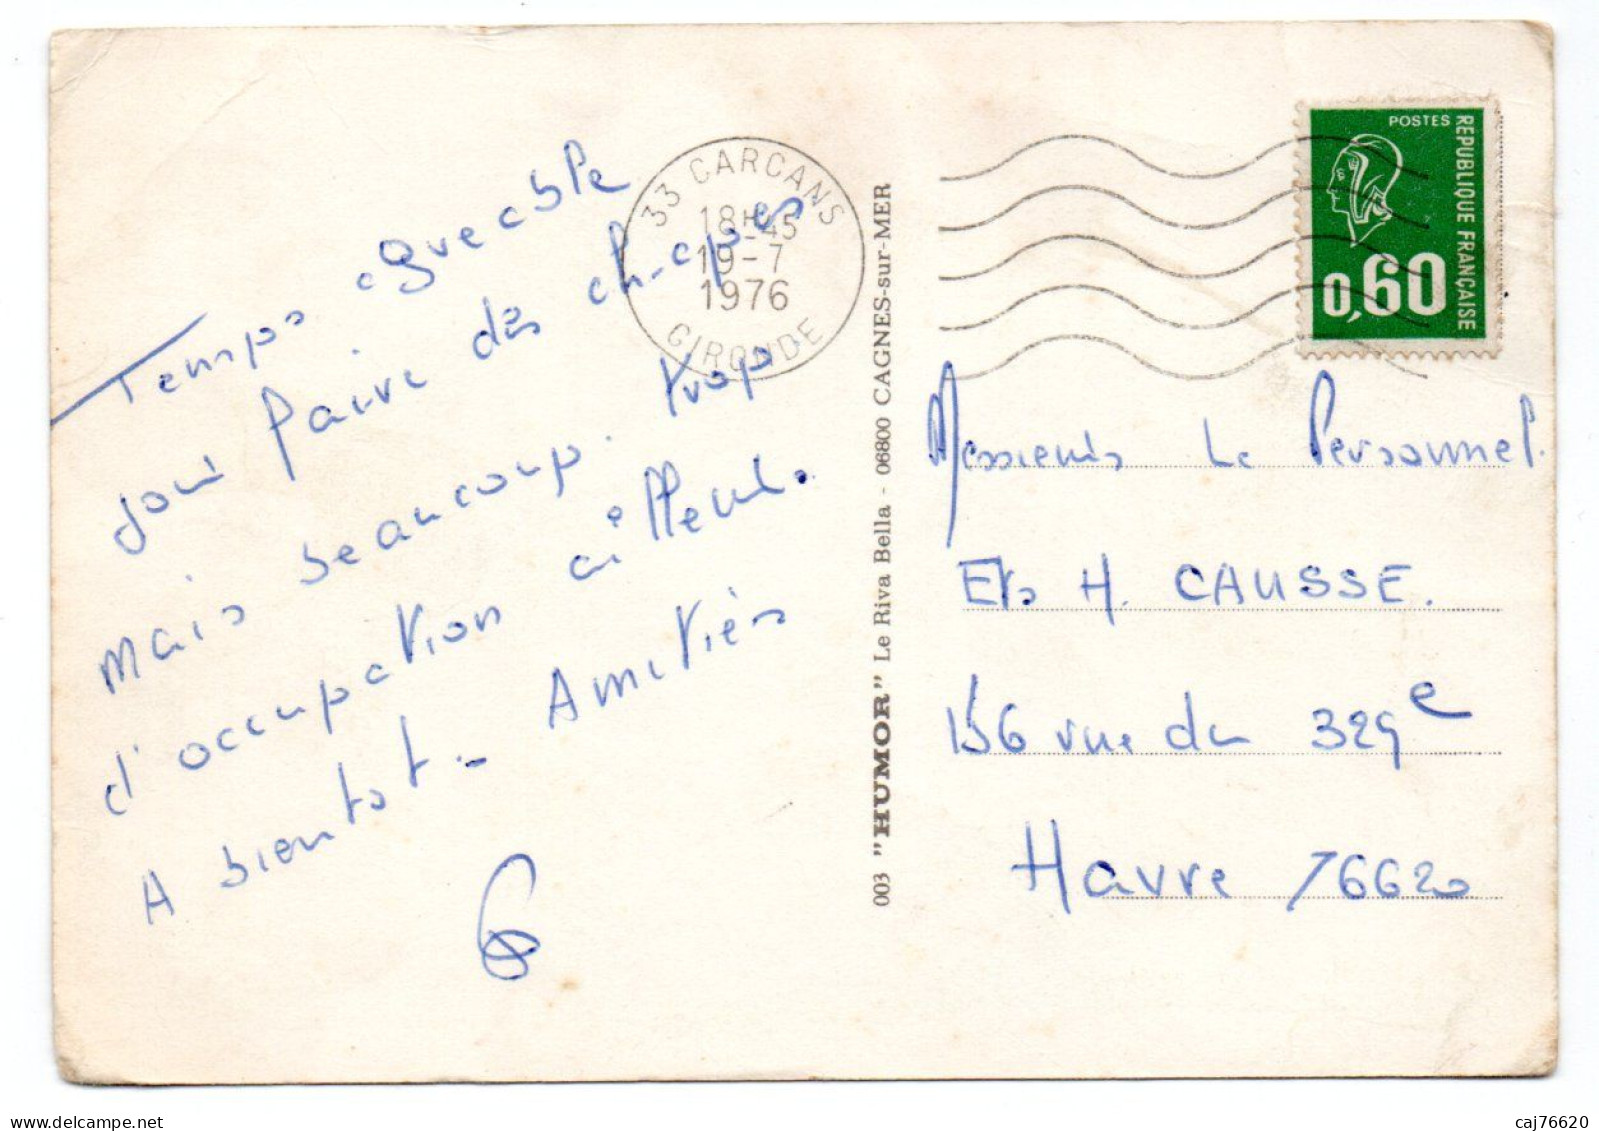 Temps agreable
pour faire des ch-apes
mais beaucoup trop
d'occupation ailleurs.
A bientot - Amitiés
33 CARCANS
18H45
19-7
1976
GIRONDE
003 "HUMOR" Le Riva Bella - 06800 CAGNES-sur-MER
POSTES
REPUBLIQUE FRANÇAISE
0,60
Messieurs Le Personnel.
Ets H. CAUSSE.
156 rue du 329e
Havre 76620
delcampe.net
caj76620